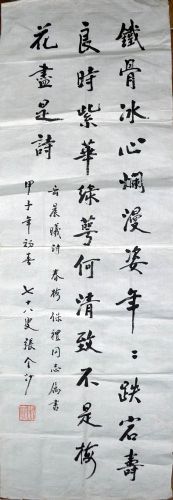 鐵骨冰心爛漫姿年〻跌宕壽
良時紫華綠萼何清致不是梅
花盡是詩
晨曦詩 春梅 保禮同志屬書
甲子年初春 七十八叟張